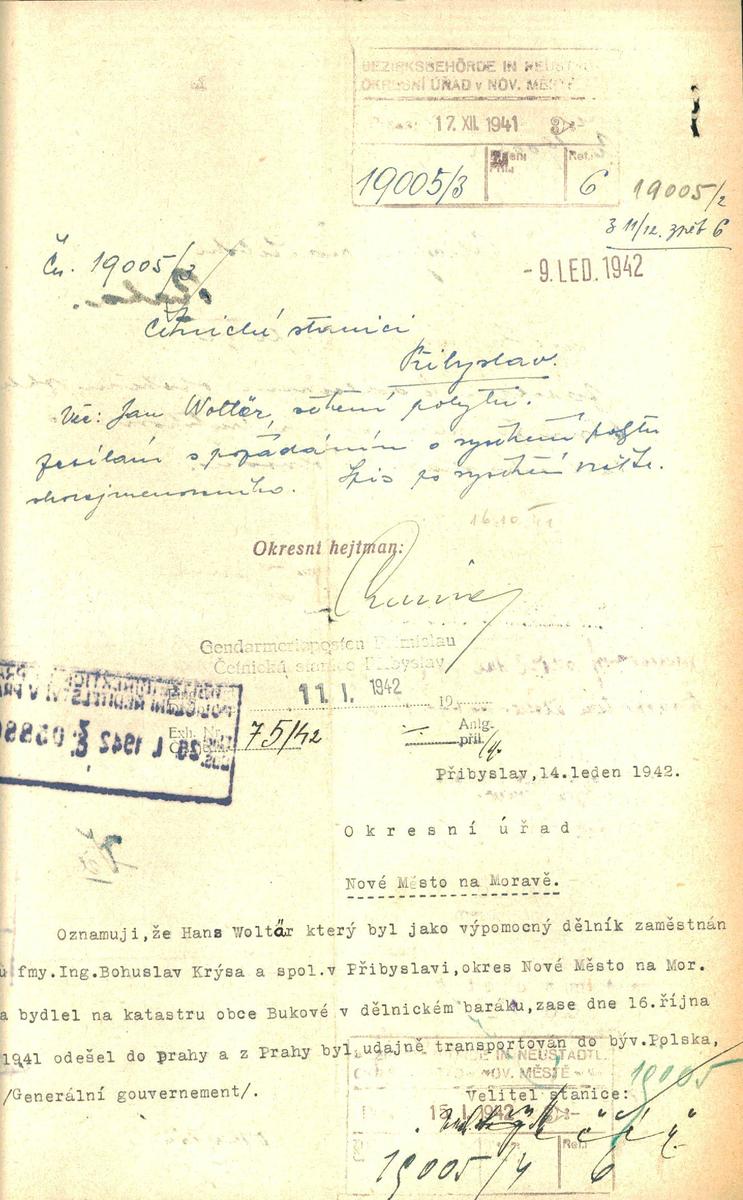 BEZIRKSBEHÖRDE IN NEUST
OKRESNÍ ÚŘAD v NOV. MĚSTĚ
17. XII. 1941
19005/3
6
19005/2
3 11/12. zpět 6
Čís. 19005/3
- 9. LED. 1942
Četnické stanici
Přibyslav.
Věc: Jan Woltär, zjištění pobytu.
Zasílám s požádáním o vyšetření pobytu
shorajmenovaného. Spis po vyšetření vraťte.
Okresní hejtman:
Gendarmerieposten Primislau
Četnická stanice Přibyslav
11. I. 1942
19
Exh. Nr.
75/42
Anlg.
příl.
POLICEJNÍ ŘEDITELSTVÍ V PRA
1942
Přibyslav,14.leden 1942.
Okresní úřad
Nové Město na Moravě.
Oznamuji,že Hans Woltär který byl jako výpomocný dělník zaměstnán
u fmy.Ing.Bohuslav Krýsa a spol.v Přibyslavi,okres Nové Město na Mor.
a bydlel na katastru obce Bukové v dělnickém baráku,zase dne 16.října
1941 odešel do prahy a z Prahy byl udajně transportován do býv.Polska,
/Generální gouvernement/.
IN NEUSTADTL
NOV. MĚSTĚ
Velitel stanice:
19005
15. I. 1942
19005/4
Ref.
6